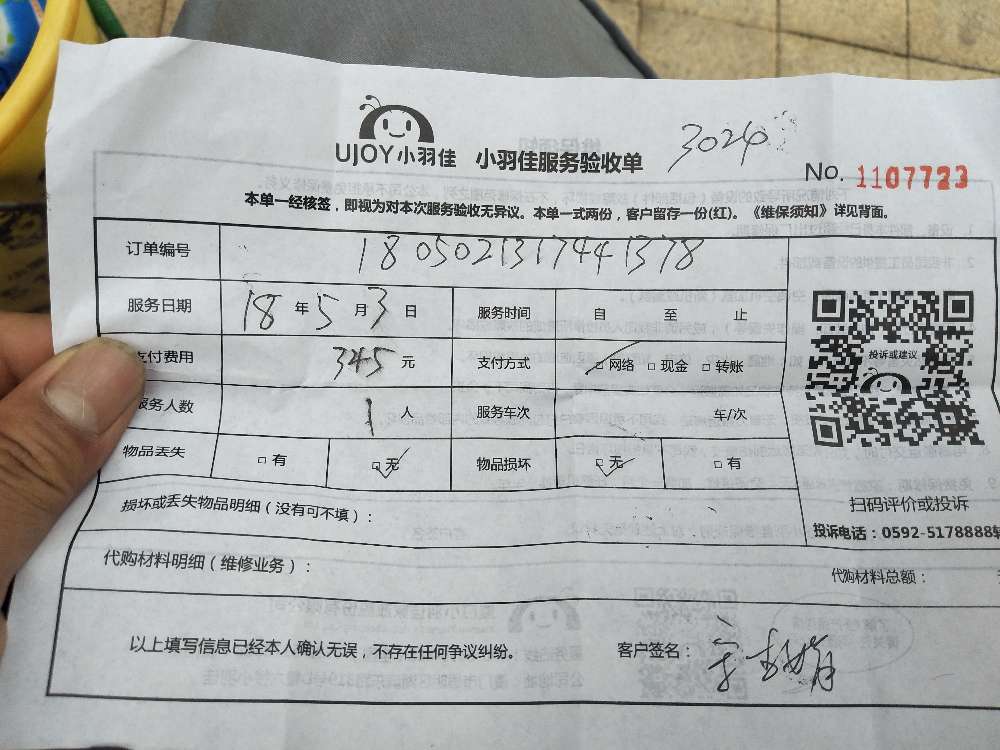 UJOY小羽佳 小羽佳服务验收单 3024
No. 1107723
本单一经核签，即视为对本次服务验收无异议。本单一式两份，客户留存一份(红)。《维保须知》详见背面。
订单编号 1805021317441378
服务日期 18 年 5 月 3 日 服务时间 自 至 止
支付费用 345 元 支付方式 □网络 □现金 □转账
服务人数 1 人 服务车次 车/次
物品丢失 □有 □无 物品损坏 □无 □有
投诉或建议
扫码评价或投诉
投诉电话：0592-5178888转
损坏或丢失物品明细（没有可不填）：
代购材料明细（维修业务）： 代购材料总额：
以上填写信息已经本人确认无误，不存在任何争议纠纷。 客户签名：